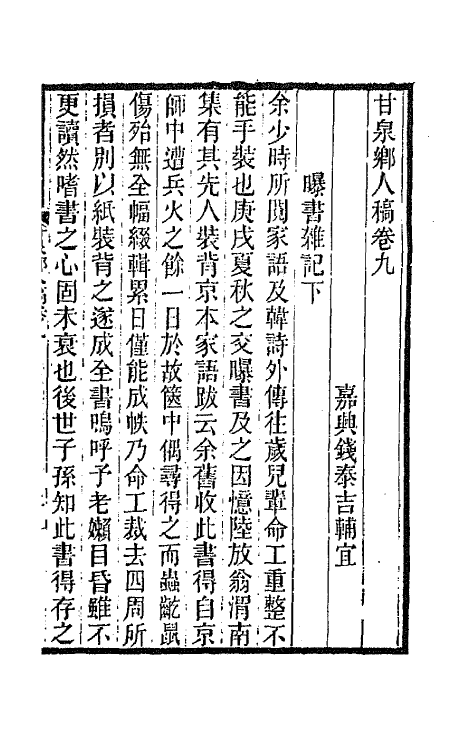 甘泉鄉人稿卷九
嘉興錢泰吉輔宜
曝書雜記下
余少時所閱家語及韓詩外傳往歲兒輩命工重整不
能手裝也庚戌夏秋之交曝書及之因憶陸放翁渭南
集有其先人裝背京本家語跋云余舊收此書得自京
師中遭兵火之餘一日於故篋中偶尋得之而蟲齕鼠
傷殆無全幅綴輯累日僅能成帙乃命工裁去四周所
損者別以紙裝背之遂成全書嗚呼予老嬾目昏雖不
更讀然嗜書之心固未衰也後世子孫知此書得存之